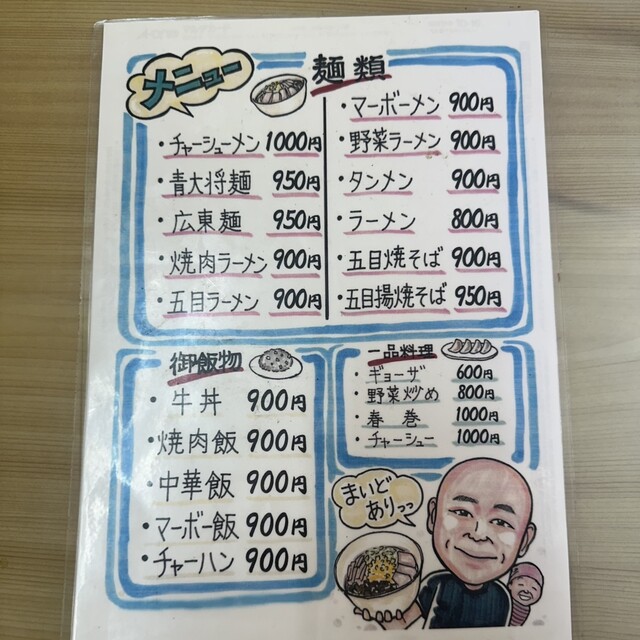 メニュー
麺類
・チャーシューメン 1000円
・青大将麺 950円
・広東麺 950円
・焼肉ラーメン 900円
・五目ラーメン 900円
・マーボーメン 900円
・野菜ラーメン 900円
・タンメン 900円
・ラーメン 800円
・五目焼そば 900円
・五目揚焼そば 950円
御飯物
・牛丼 900円
・焼肉飯 900円
・中華飯 900円
・マーボー飯 900円
・チャーハン 900円
一品料理
・ギョーザ 600円
・野菜炒め 800円
・春巻 1000円
・チャーシュー 1000円
まいど
ありっっ